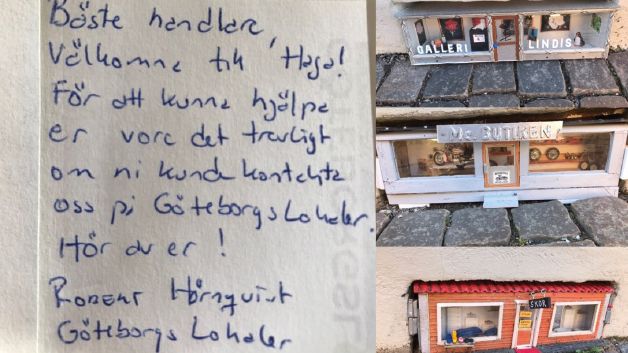 Bäste handlare,
Välkomna till Haga!
För att kunna hjälpa
er vore det trevligt
om ni kunde kontakta
oss på GöteborgsLokaler.
Hör av er!
Robert Hörnquist
Göteborgs Lokaler
GALLERI LINDIS
Mc BUTIKEN
SKOR